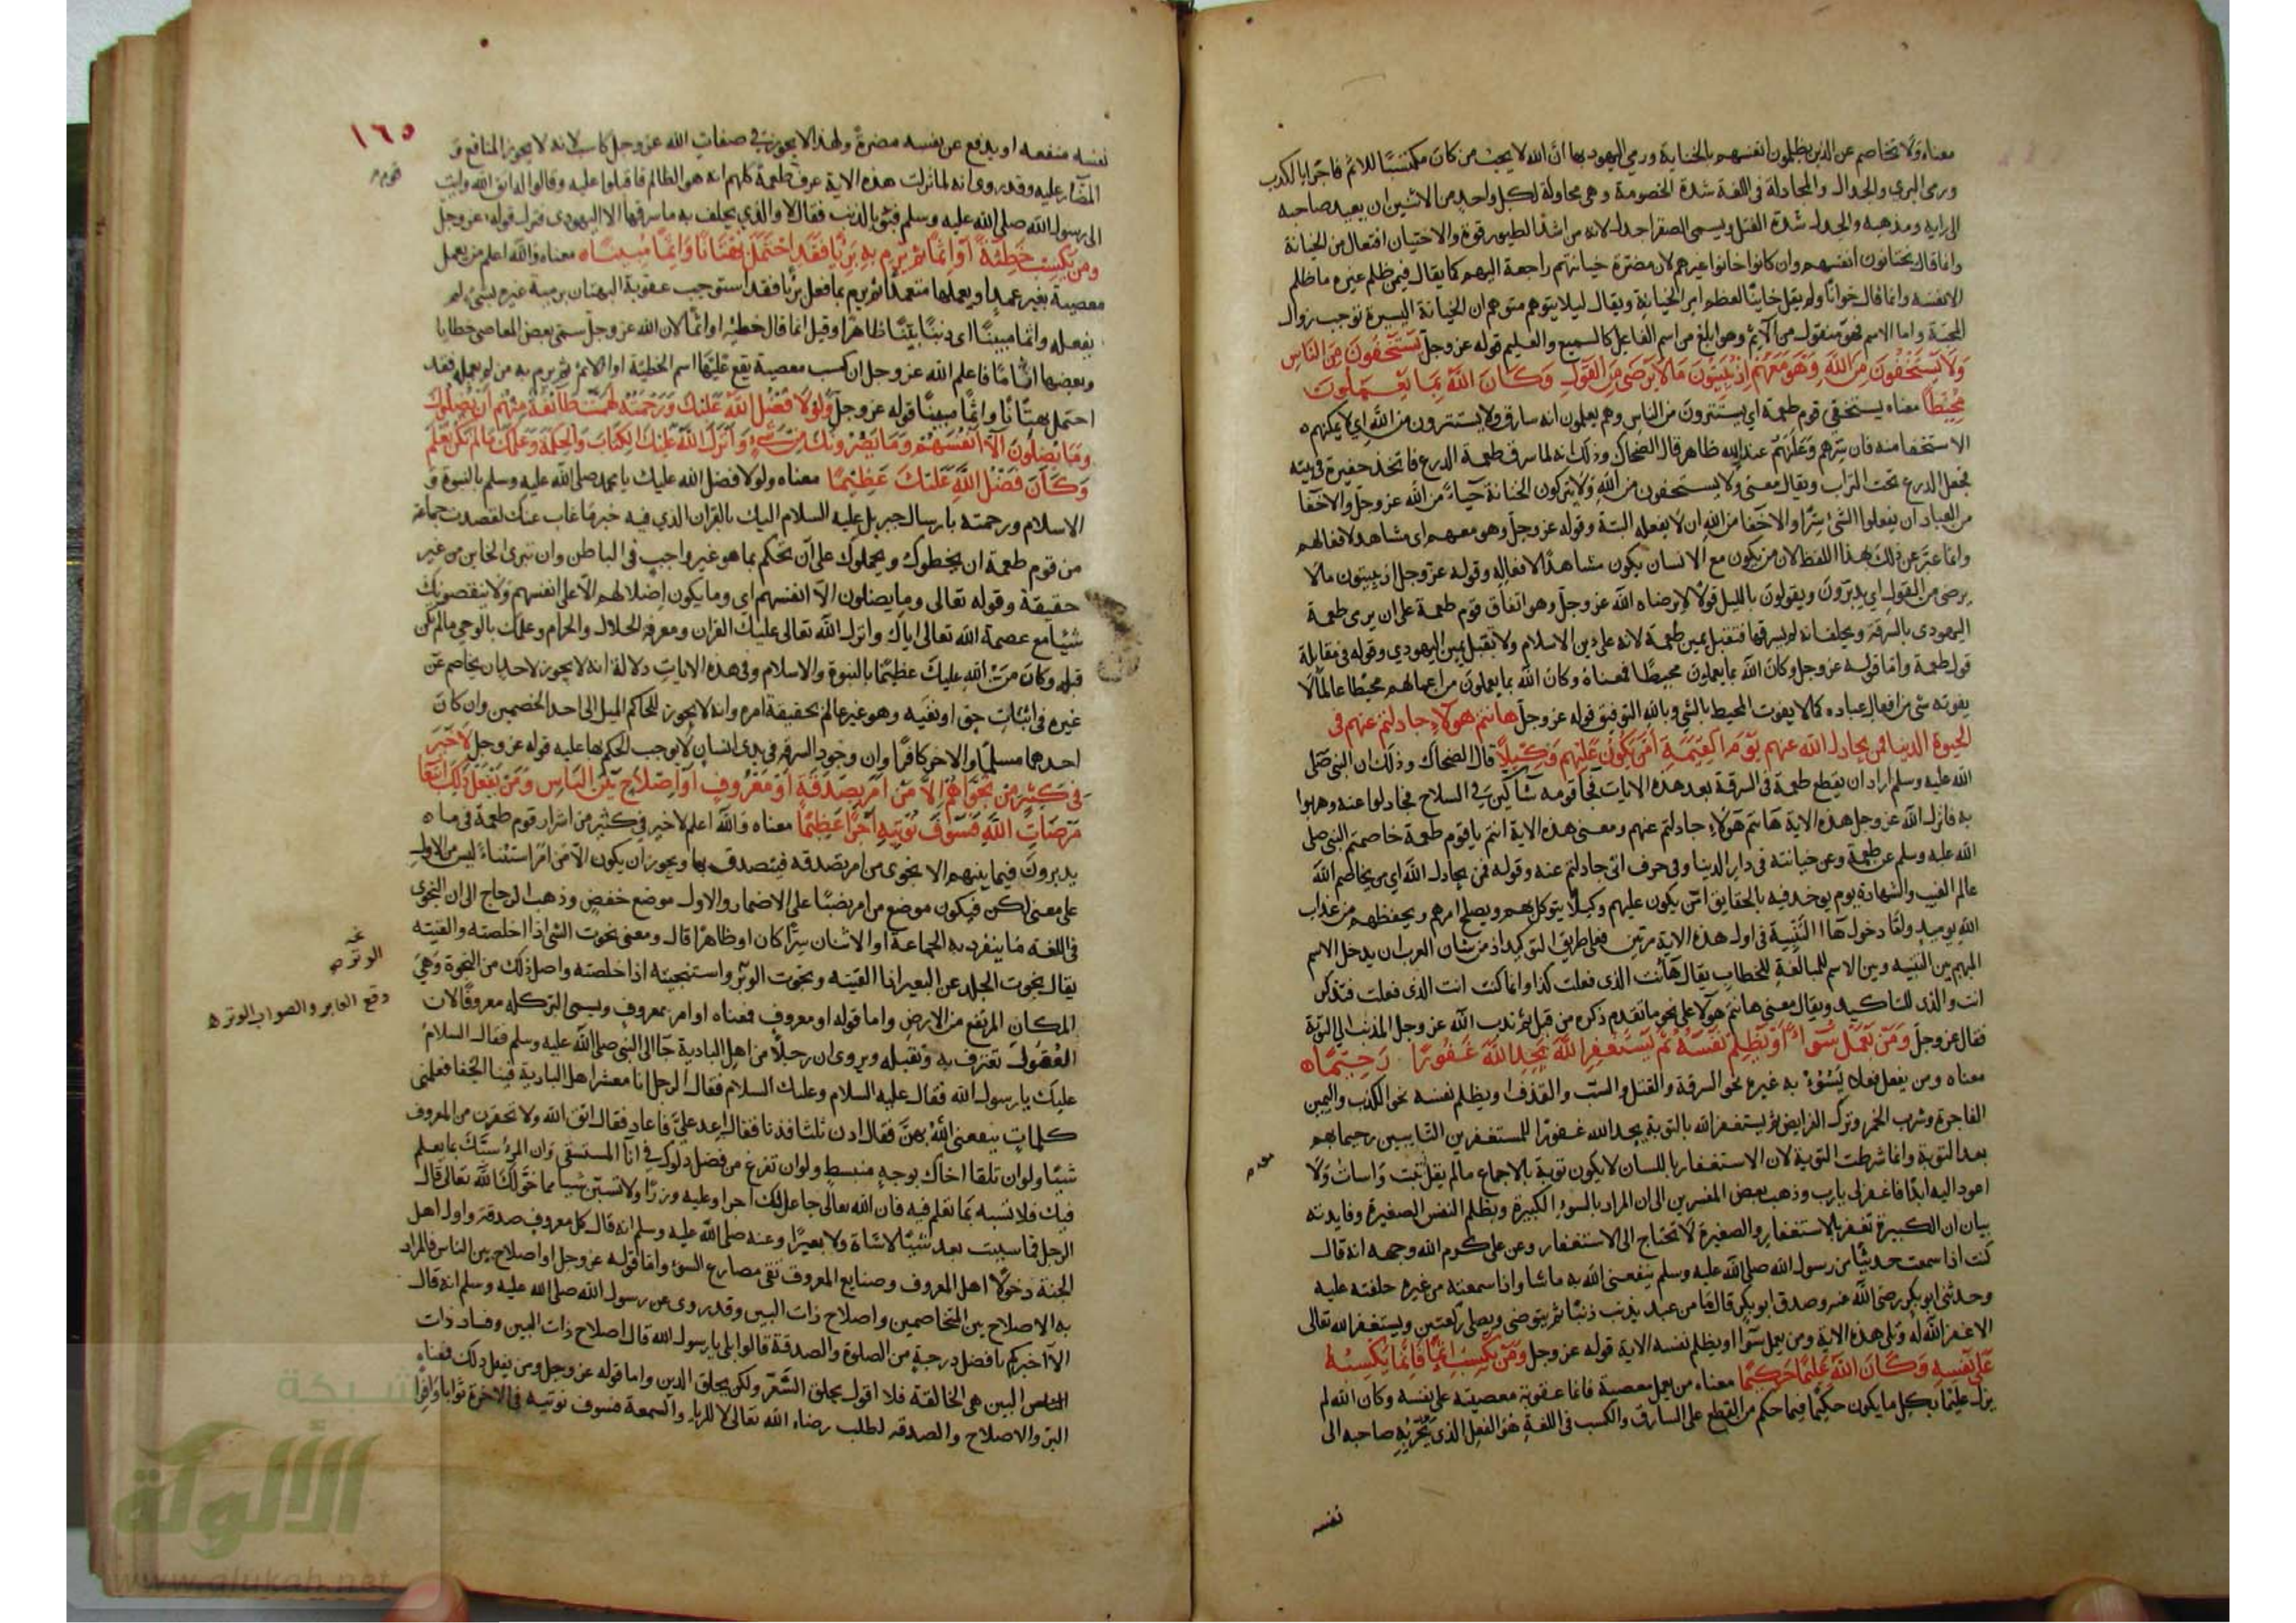 معناه ولا تخاصم عن الذين يظلمون انفسهم بالخيانة ورمي اليهود بها ان الله لا يحب من كان مكتسبا للاثم فاجرا بالكذب
ورمى البري والجدال والمجادلة فى اللغة شدة الخصومة وهى محاولة لكل واحد من الاثنين ان يعيد صاحبه
الى رايه ومذهبه والجدل شدة الفتل ويسمى الصقر اجدل لانه من اشد الطيور قوة والاختيان افتعال من الخيانة
وانما قال يختانون انفسهم وان كانوا خانوا غيرهم لان مضرة خيانتهم راجعة اليهم كما يقال فيمن ظلم غيره ما ظلم
الا نفسه وانما قال خوانا ولم يقل خاينا لعظم امر الخيانة ويقال ليلا يتوهم متوهم ان الخيانة اليسيرة توجب زوال
المحبة واما الاسم فهو منقول من الآثم وهو ابلغ من اسم الفاعل كالسميع والعليم قوله عز وجل يستخفون من الناس
ولا يستخفون من الله وهو معهم اذ يبيتون ما لا يرضى من القول وكان الله بما يعملون
محيطا معناه يستخفى قوم طعمة اى يستترون من الناس وهم يعلمون انه سارق ولا يستترون من الله اي لا يمكنهم
الاستخفا منه فان سرهم وعلنهم عند الله ظاهر قال الضحاك وذلك انه لما سرق طعمة الدرع فاتخذ حفيرة فى بيته
فجعل الدرع تحت التراب ويقال معنى ولا يستخفون من الله ولا يتركون الخيانة حياء من الله عز وجل والاخفا
من العباد ان يفعلوا الشئ سرا والاخفا من الله ان لا يفعله البتة وقوله عز وجل وهو معهم اى مشاهد لافعالهم
وانما عبر عن ذلك بهذا اللفظ لان من يكون مع الانسان يكون مشاهدا لافعاله وقوله عز وجل اذ يبيتون مالا
يرضى من القول اى يدبرون ويقولون بالليل قولا لا يرضاه الله عز وجل وهو اتفاق قوم طعمة على ان يرمى طعمة
اليهودى بالسرقة ويحلف انه لم يسرقها فتقبل يمين طعمة لانه على دين الاسلام ولا تقبل يمين اليهودي وقوله فى مقابلة
قول طعمة واما قوله عز وجل وكان الله بما يعملون محيطا فمعناه وكان الله بما يعملون من اعمالهم محيطا عالما لا
يفوته شى من افعال عباده كما لا يفوت المحيط بالشى وبالله التوفيق قوله عز وجل هاانتم هولاء جادلتم عنهم فى
الحيوة الدنيا فمن يجادل الله عنهم يوم القيمة ام من يكون عليهم وكيلا قال الضحاك وذلك ان النبى صلى
الله عليه وسلم اراد ان يقطع طعمة فى السرقة بعد هذه الايات فجا قومه شاكين فى السلاح فجادلوا عنه وهربوا
به فانزل الله عز وجل هذه الاية هاانتم هولاء جادلتم عنهم ومعنى هذه الاية انتم يا قوم طعمة خاصمتم النبى صلى
الله عليه وسلم عن طعمة وعن خيانته فى دار الدنيا وفى حرف ابى جادلتم عنه وقوله فمن يجادل الله اي من يخاصم الله
عالم الغيب والشهادة يوم يوخذ فيه بالحقايق امن يكون عليهم وكيلا يتوكل بهم ويصلح امرهم ويحفظهم من عذاب
الله يوميذ ولقا دخول ها التنبيه فى اول هذه الاية مرتين فعلى طريق التوكيد اذ من شان العرب ان يدخل الاسم
المبهم بين التنبيه وبين الاسم للمبالغة للخطاب يقال هاانت الذى فعلت كذا وانما كنت انت الذى فعلت فتذكر
انت والذى للتاكيد ويقال معنى هاانتم هولا على نحو ما تقدم ذكره من قبل ثم ندب الله عز وجل المذنب الى التوبة
فقال عز وجل ومن يعمل سوءا او يظلم نفسه ثم يستغفر الله يجد الله غفورا رحيما
معناه ومن يفعل فعلا يسوء به غيره نحو السرقة والقتل والسب والقذف او يظلم نفسه نحو الكذب واليمين
الفاجرة وشرب الخمر وترك الفرايض ثم يستغفر الله بالتوبة يجد الله غفورا للمستغفرين التايبين رحيما بهم
بعد التوبة وانما شرطت التوبة لان الاستغفار باللسان لا يكون توبة بالاجماع مالم يقل تبت واسات ولا
اعود اليه ابدا فاغفر لى يارب وذهب بعض المفسرين الى ان المراد بالسوء الكبيرة وبظلم النفس الصغيرة وفايدته
بيان ان الكبيرة تغفر بالاستغفار والصغيرة لا تحتاج الى الاستغفار وعن على كرم الله وجهه انه قال
كنت اذا سمعت حديثا من رسول الله صلى الله عليه وسلم ينفعنى الله به ماشا واذا سمعته من غيره حلفته عليه
وحدثنى ابو بكر رضى الله عنه وصدق ابو بكر قال ما من عبد يذنب ذنبا ثم يتوضى ويصلى ركعتين ويستغفر الله تعالى
الا غفر الله له وتلى هذه الاية ومن يعمل سوا او يظلم نفسه الاية قوله عز وجل ومن يكسب اثما فانما يكسبه
على نفسه وكان الله عليما حكيما معناه من يعمل معصية فانما عقوبة معصيته على نفسه وكان الله لم
يزل عليما بكل ما يكون حكيما فيما حكم من القطع على السارق والكسب فى اللغة هو الفعل الذى يجر به صاحبه الى
نفسه
١٦٥
نفسه منفعه او يدفع عن نفسه مضرة ولهذا لا يجوز فى صفات الله عز وجل كاسب لانه لا يجوز المنافع و
المضار عليه وقد روى انه لما نزلت هذه الاية عرف قوم طعمة كلهم انه هو الظالم فاقبلوا عليه وقالوا له اتق الله وايت
الى رسول الله صلى الله عليه وسلم فبؤ بالذنب فقال لا والذي يحلف به ما سرقها الا اليهودى فنزل قوله عز وجل
ومن يكسب خطيئة او اثما ثم يرم به بريا فقد احتمل بهتانا واثما مبينا معناه والله اعلم من يعمل
معصية بغير عمد او يعملها متعمدا ثم يرم بما فعل بريا فقد استوجب عقوبة البهتان برميه غيره بشئ لم
يفعله واثما مبينا اى ذنبا بينا ظاهرا وقيل انما قال خطيه او اثما لان الله عز وجل سمى بعض المعاصى خطايا
وبعضها اثاما فاعلم الله عز وجل ان كسب معصية يقع عليها اسم الخطيئة او الاثم ثم يرم به من لم يعمله فقد
احتمل بهتانا واثما مبينا قوله عز وجل ولولا فضل الله عليك ورحمته لهمت طائفة منهم ان يضلوك
وما يضلون الا انفسهم وما يضرونك من شيء وانزل الله عليك الكتاب والحكمة وعلمك مالم تكن تعلم
وكان فضل الله عليك عظيما معناه ولولا فضل الله عليك يا محمد صلى الله عليه وسلم بالنبوة و
الاسلام ورحمته بارسال جبريل عليه السلام اليك بالقران الذي فيه خبر ما غاب عنك لقصدت جماعة
من قوم طعمة ان يخطوك ويحملوك على ان تحكم بما هو غير واجب فى الباطن وان تبرى الخاين من غير
حقيقة وقوله تعالى وما يضلون الا انفسهم اي وما يكون اضلالهم الا على انفسهم ولا ينقصونك
شيئا مع عصمة الله تعالى اياك وانزل الله تعالى عليك القران ومعرفة الحلال والحرام وعلمك بالوحي مالم تكن
قبله وكان من الله عليك عظيما بالنبوة والاسلام وفى هذه الايات دلالة انه لا يجوز لاحد ان يخاصم عن
غيره فى اثبات حق او نفيه وهو غير عالم بحقيقة امره وانه لا يجوز للحاكم الميل الى احد الخصمين وان كان
احدهما مسلما والاخر كافرا وان وجود السرقه فى يدى انسان لا توجب الحكم بها عليه قوله عز وجل لا خير
فى كثير من نجواهم الا من امر بصدقة او معروف او اصلاح بين الناس ومن يفعل ذلك ابتغا
مرضات الله فسوف نؤتيه اجرا عظيما معناه والله اعلم لا خير فى كثير من اسرار قوم طعمة فى ما
يدبرون فيما بينهم الا نجوى من امر بصدقه فيتصدق بها ويجوز ان يكون الا من امر استثناء ليس من الاول
على معنى لكن فيكون موضع من امر نصبا على الاضمار والاول موضع خفض وذهب الزجاج الى ان النجوى
فى اللغة ما ينفرد به الجماعة او الاثنان سرا كان او ظاهرا قال ومعنى نجوت الشى اذا اخلصته والقيته
يقال نجوت الجلد عن البعير اذا القيته ونجوت الوتر واستنجيته اذا خلصته واصل ذلك من النجوة وهي
المكان المرتفع من الارض واما قوله او معروف فمعناه او امر بمعروف ويسمى البر كله معروفا لان
العقول تعترف به وتقبله ويروى ان رجلا من اهل البادية جا الى النبى صلى الله عليه وسلم فقال السلام
عليك يا رسول الله فقال عليه السلام وعليك السلام فقال الرجل انا معشر اهل البادية فينا الجفا فعلمنى
كلمات ينفعنى الله بهن فقال ادن ثلثا فدنا فقال اعد علي فاعاد فقال اتق الله ولا تحقرن من المعروف
شيئا ولو ان تلقا اخاك بوجه منبسط ولو ان تفرغ من فضل دلوك فى انآ المستسقى وان امرؤ سبك بما يعلم
فيك فلا تسبه بما تعلم فيه فان الله تعالى جاعل لك اجرا وعليه وزرا ولا تسبن شيا مما خولك الله تعالى قال
الرجل فما سببت بعد شيئا لا شاة ولا بعيرا وعنه صلى الله عليه وسلم انه قال كل معروف صدقة واول اهل
الجنة دخولا اهل المعروف وصنايع المعروف تقى مصارع السوء واما قوله عز وجل او اصلاح بين الناس فالمراد
به الاصلاح بين المتخاصمين واصلاح ذات البين وقد روى عن رسول الله صلى الله عليه وسلم انه قال
الا اخبركم بافضل درجة من الصلوة والصدقة قالوا بلى يا رسول الله قال اصلاح ذات البين وفساد ذات
البين هى الحالقة فلا اقول يحلق الشعر ولكن يحلق الدين واما قوله عز وجل ومن يفعل ذلك فمعناه
البر والاصلاح والصدقه لطلب رضاء الله تعالى لا للرياء والسمعة فسوف نوتيه فى الاخرة ثوابا وافرا
قوم
الوتر
وقع العابر والصواب الوتر
شبكة
الألوكة
www.alukah.net